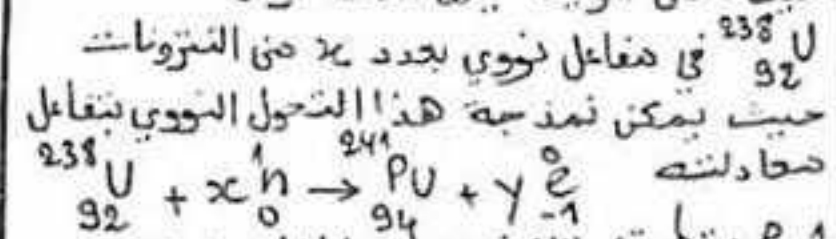 ²³⁸₉₂U في مفاعل نووي بعدد x من النترونات
حيث يمكن نمذجة هذا التحول النووي بتفاعل
معادلته
²³⁸₉₂U + x ¹₀n → ²⁴¹₉₄PU + y ⁰₋₁e